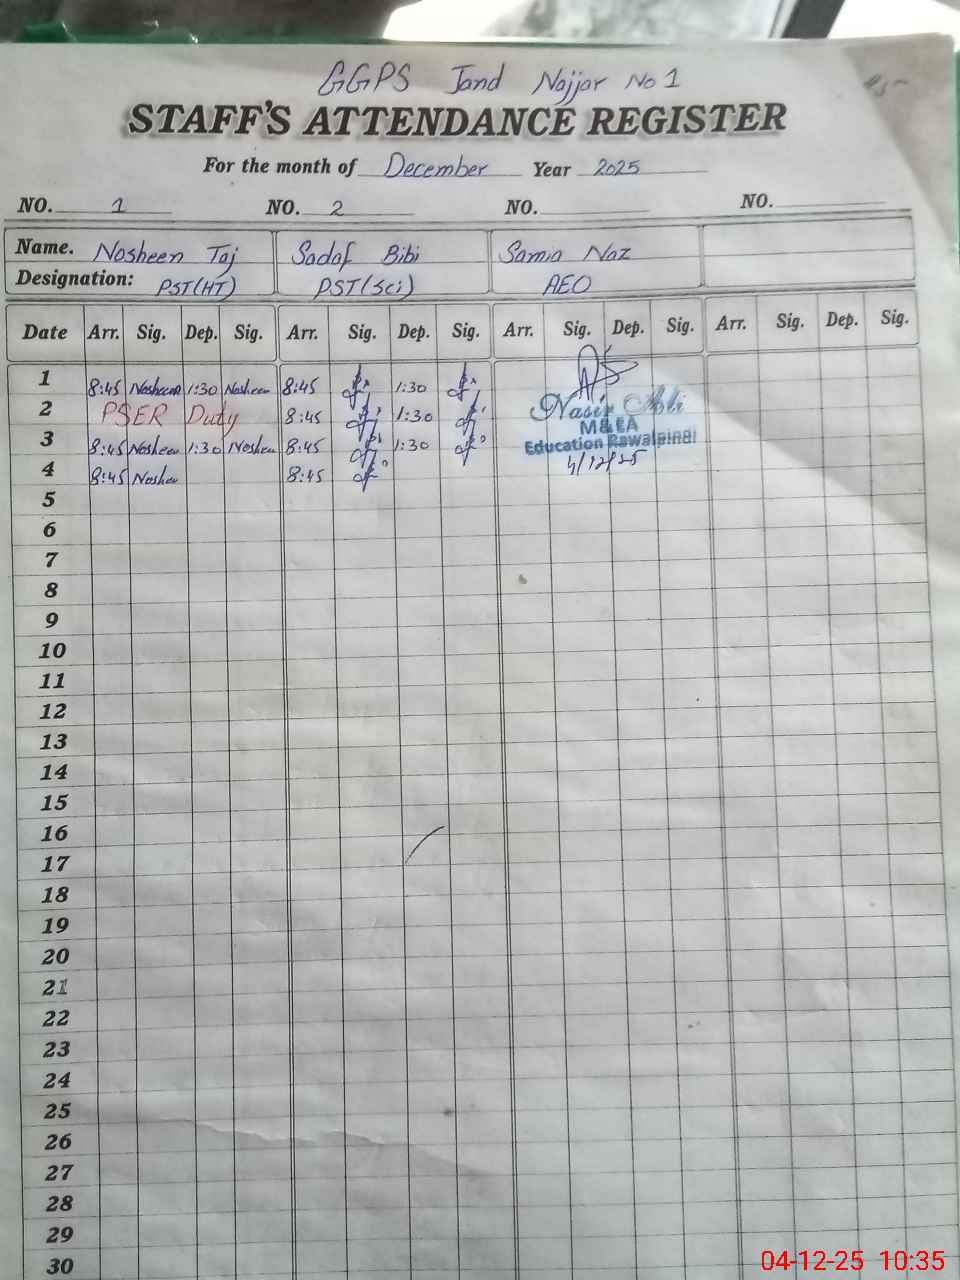 GGPS Jand Najjar No 1
STAFF'S ATTENDANCE REGISTER
For the month of December Year 2025
NO. 1 NO. 2 NO. NO.
Name. Nosheen Taj Sadaf Bibi Samia Naz
Designation: PST(HT) PST(Sci) AEO
Date Arr. Sig. Dep. Sig. Arr. Sig. Dep. Sig. Arr. Sig. Dep. Sig. Arr. Sig. Dep. Sig.
1 8:45 Nosheen 1:30 Nosheen 8:45 1:30
2 PSER Duty 8:45 1:30 Nasir Ali
M&EA
3 8:45 Nosheen 1:30 Nosheen 8:45 1:30 Education Rawalpindi
4 8:45 Nosheen 8:45 4/12/25
5
6
7
8
9
10
11
12
13
14
15
16
17
18
19
20
21
22
23
24
25
26
27
28
29
30
04-12-25 10:35